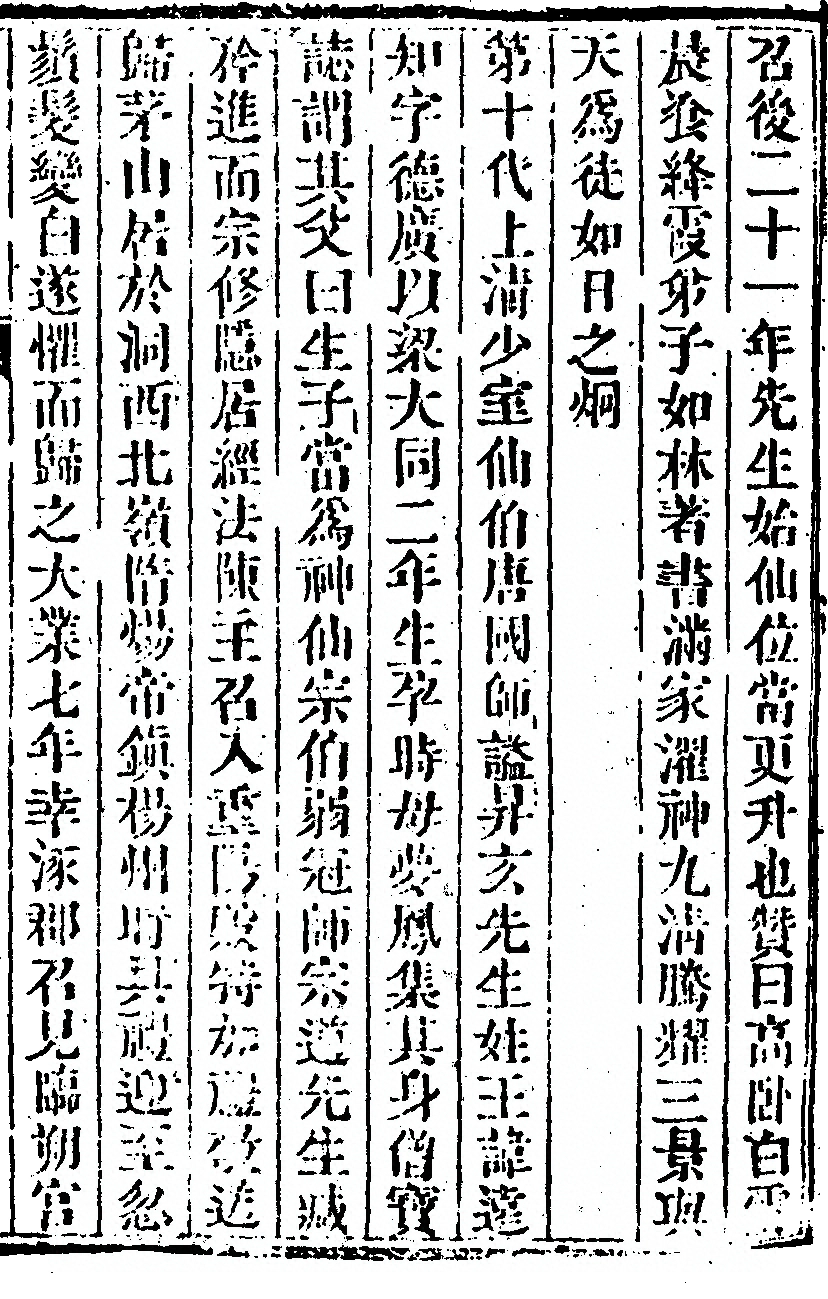 召後二十一年先生始仙位當更升也贊曰高卧白雲
晨飡絳霞弟子如林著書滿家濯神九清騰耀三景與
天爲徒如日之炯
第十代上清少室仙伯唐國師謚昇玄先生姓王諱遠
知字德廣以梁大同二年生孕時母夢鳳集其身僧寶
誌謂其父曰生子當爲神仙宗伯弱冠師宗道先生臧
矜進而宗修隱居經法陳主召入重陽殿特加禮敬送
歸茅山居於洞西北嶺隋煬帝鎮楊州時具禮迎至忽
鬚髮變白遂懼而歸之大業七年幸涿郡召見臨朔宮